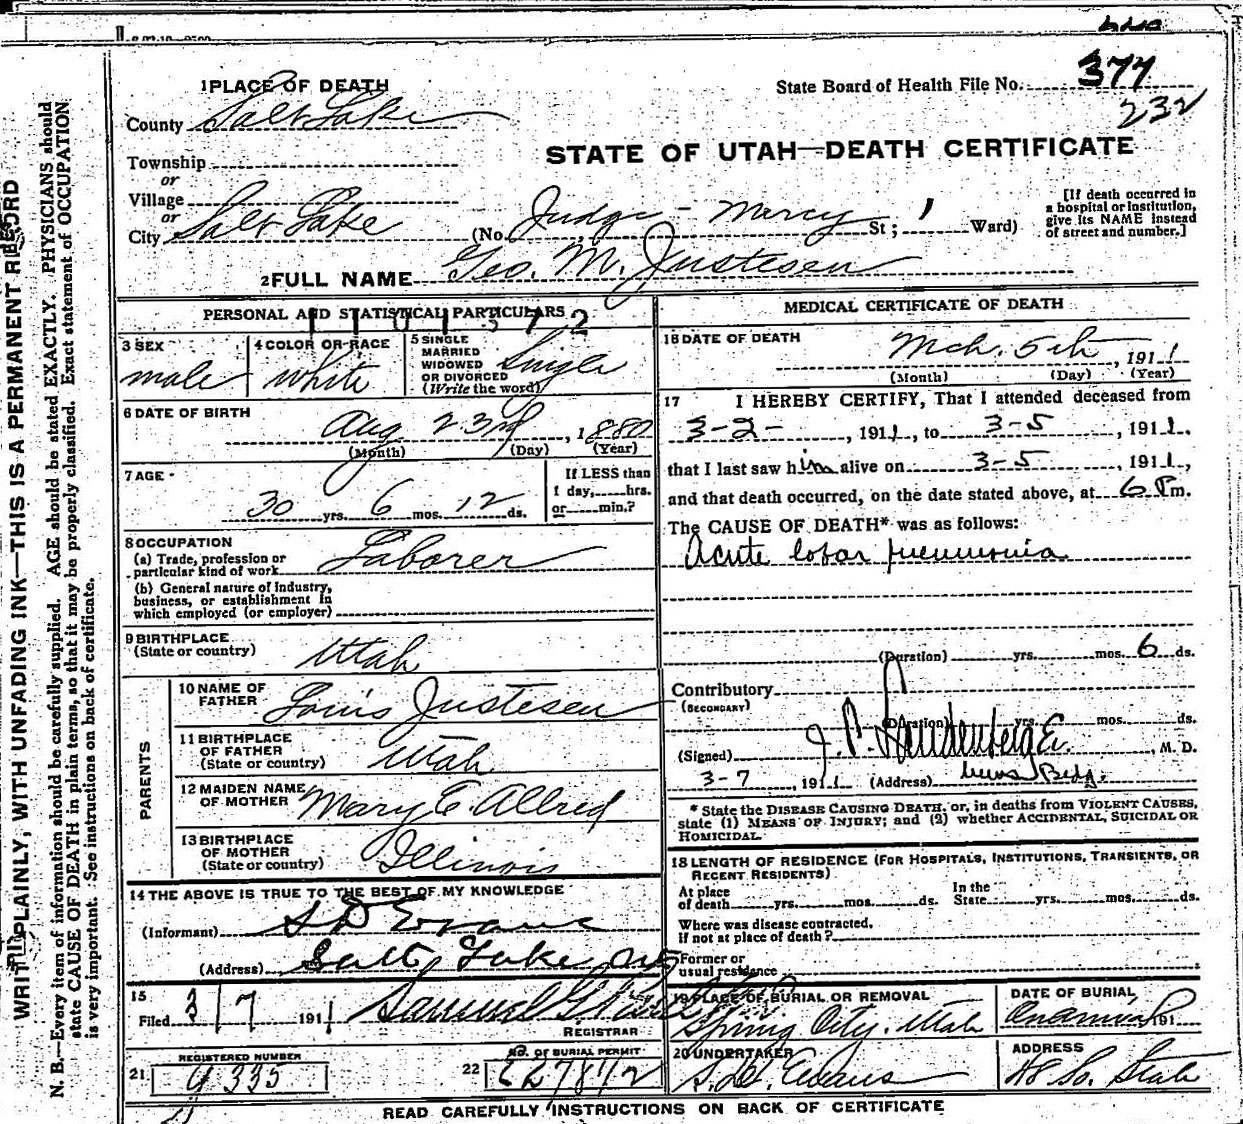 377
State Board of Health File No.
232
1 PLACE OF DEATH
County Salt Lake
STATE OF UTAH—DEATH CERTIFICATE
Township
or
Village
or
City Salt Lake (No. Judge - Mercy St; 1 Ward)
[If death occurred in
a hospital or institution,
give its NAME instead
of street and number.]
2 FULL NAME Geo. M. Justesen
PERSONAL AND STATISTICAL PARTICULARS
3 SEX
male
4 COLOR OR RACE
White
5 SINGLE
MARRIED
WIDOWED
OR DIVORCED
(Write the word)
Single
6 DATE OF BIRTH
Aug 23rd, 1880
(Month) (Day) (Year)
7 AGE
30 yrs. 6 mos. 12 ds.
If LESS than
1 day, hrs.
or min.?
8 OCCUPATION
(a) Trade, profession or
particular kind of work Laborer
(b) General nature of industry,
business, or establishment in
which employed (or employer)
9 BIRTHPLACE
(State or country) Utah
PARENTS
10 NAME OF
FATHER Louis Justesen
11 BIRTHPLACE
OF FATHER
(State or country) Utah
12 MAIDEN NAME
OF MOTHER Mary E. Allred
13 BIRTHPLACE
OF MOTHER
(State or country) Illinois
14 THE ABOVE IS TRUE TO THE BEST OF MY KNOWLEDGE
(Informant) S D Evans
(Address) Salt Lake City
15
Filed 3/7 1911 Samuel G.
REGISTRAR
REGISTERED NUMBER
21
NO. OF BURIAL PERMIT
22
MEDICAL CERTIFICATE OF DEATH
16 DATE OF DEATH
Mch. 5th, 1911
(Month) (Day) (Year)
17 I HEREBY CERTIFY, That I attended deceased from
3-2-, 1911, to 3-5, 1911,
that I last saw him alive on 3-5, 1911,
and that death occurred, on the date stated above, at 6 Pm.
The CAUSE OF DEATH* was as follows:
Acute lobar pneumonia
(Duration) yrs. mos. 6 ds.
Contributory
(SECONDARY)
(Duration) yrs. mos. ds.
(Signed) J. P. , M. D.
3-7, 1911 (Address) Bldg.
* State the DISEASE CAUSING DEATH, or, in deaths from VIOLENT CAUSES,
state (1) MEANS OF INJURY; and (2) whether ACCIDENTAL, SUICIDAL OR
HOMICIDAL.
18 LENGTH OF RESIDENCE (FOR HOSPITALS, INSTITUTIONS, TRANSIENTS, OR
RECENT RESIDENTS)
At place
of death yrs. mos. ds.
In the
State yrs. mos. ds.
Where was disease contracted,
if not at place of death?
Former or
usual residence
19 PLACE OF BURIAL OR REMOVAL
Spring City, Utah
DATE OF BURIAL
191
20 UNDERTAKER
S. D. Evans
ADDRESS
48 So. State
READ CAREFULLY INSTRUCTIONS ON BACK OF CERTIFICATE
WRITE PLAINLY, WITH UNFADING INK—THIS IS A PERMANENT RECORD
N. B.—Every item of information should be carefully supplied. AGE should be stated EXACTLY. PHYSICIANS should
state CAUSE OF DEATH in plain terms, so that it may be properly classified. Exact statement of OCCUPATION
is very important. See instructions on back of certificate.